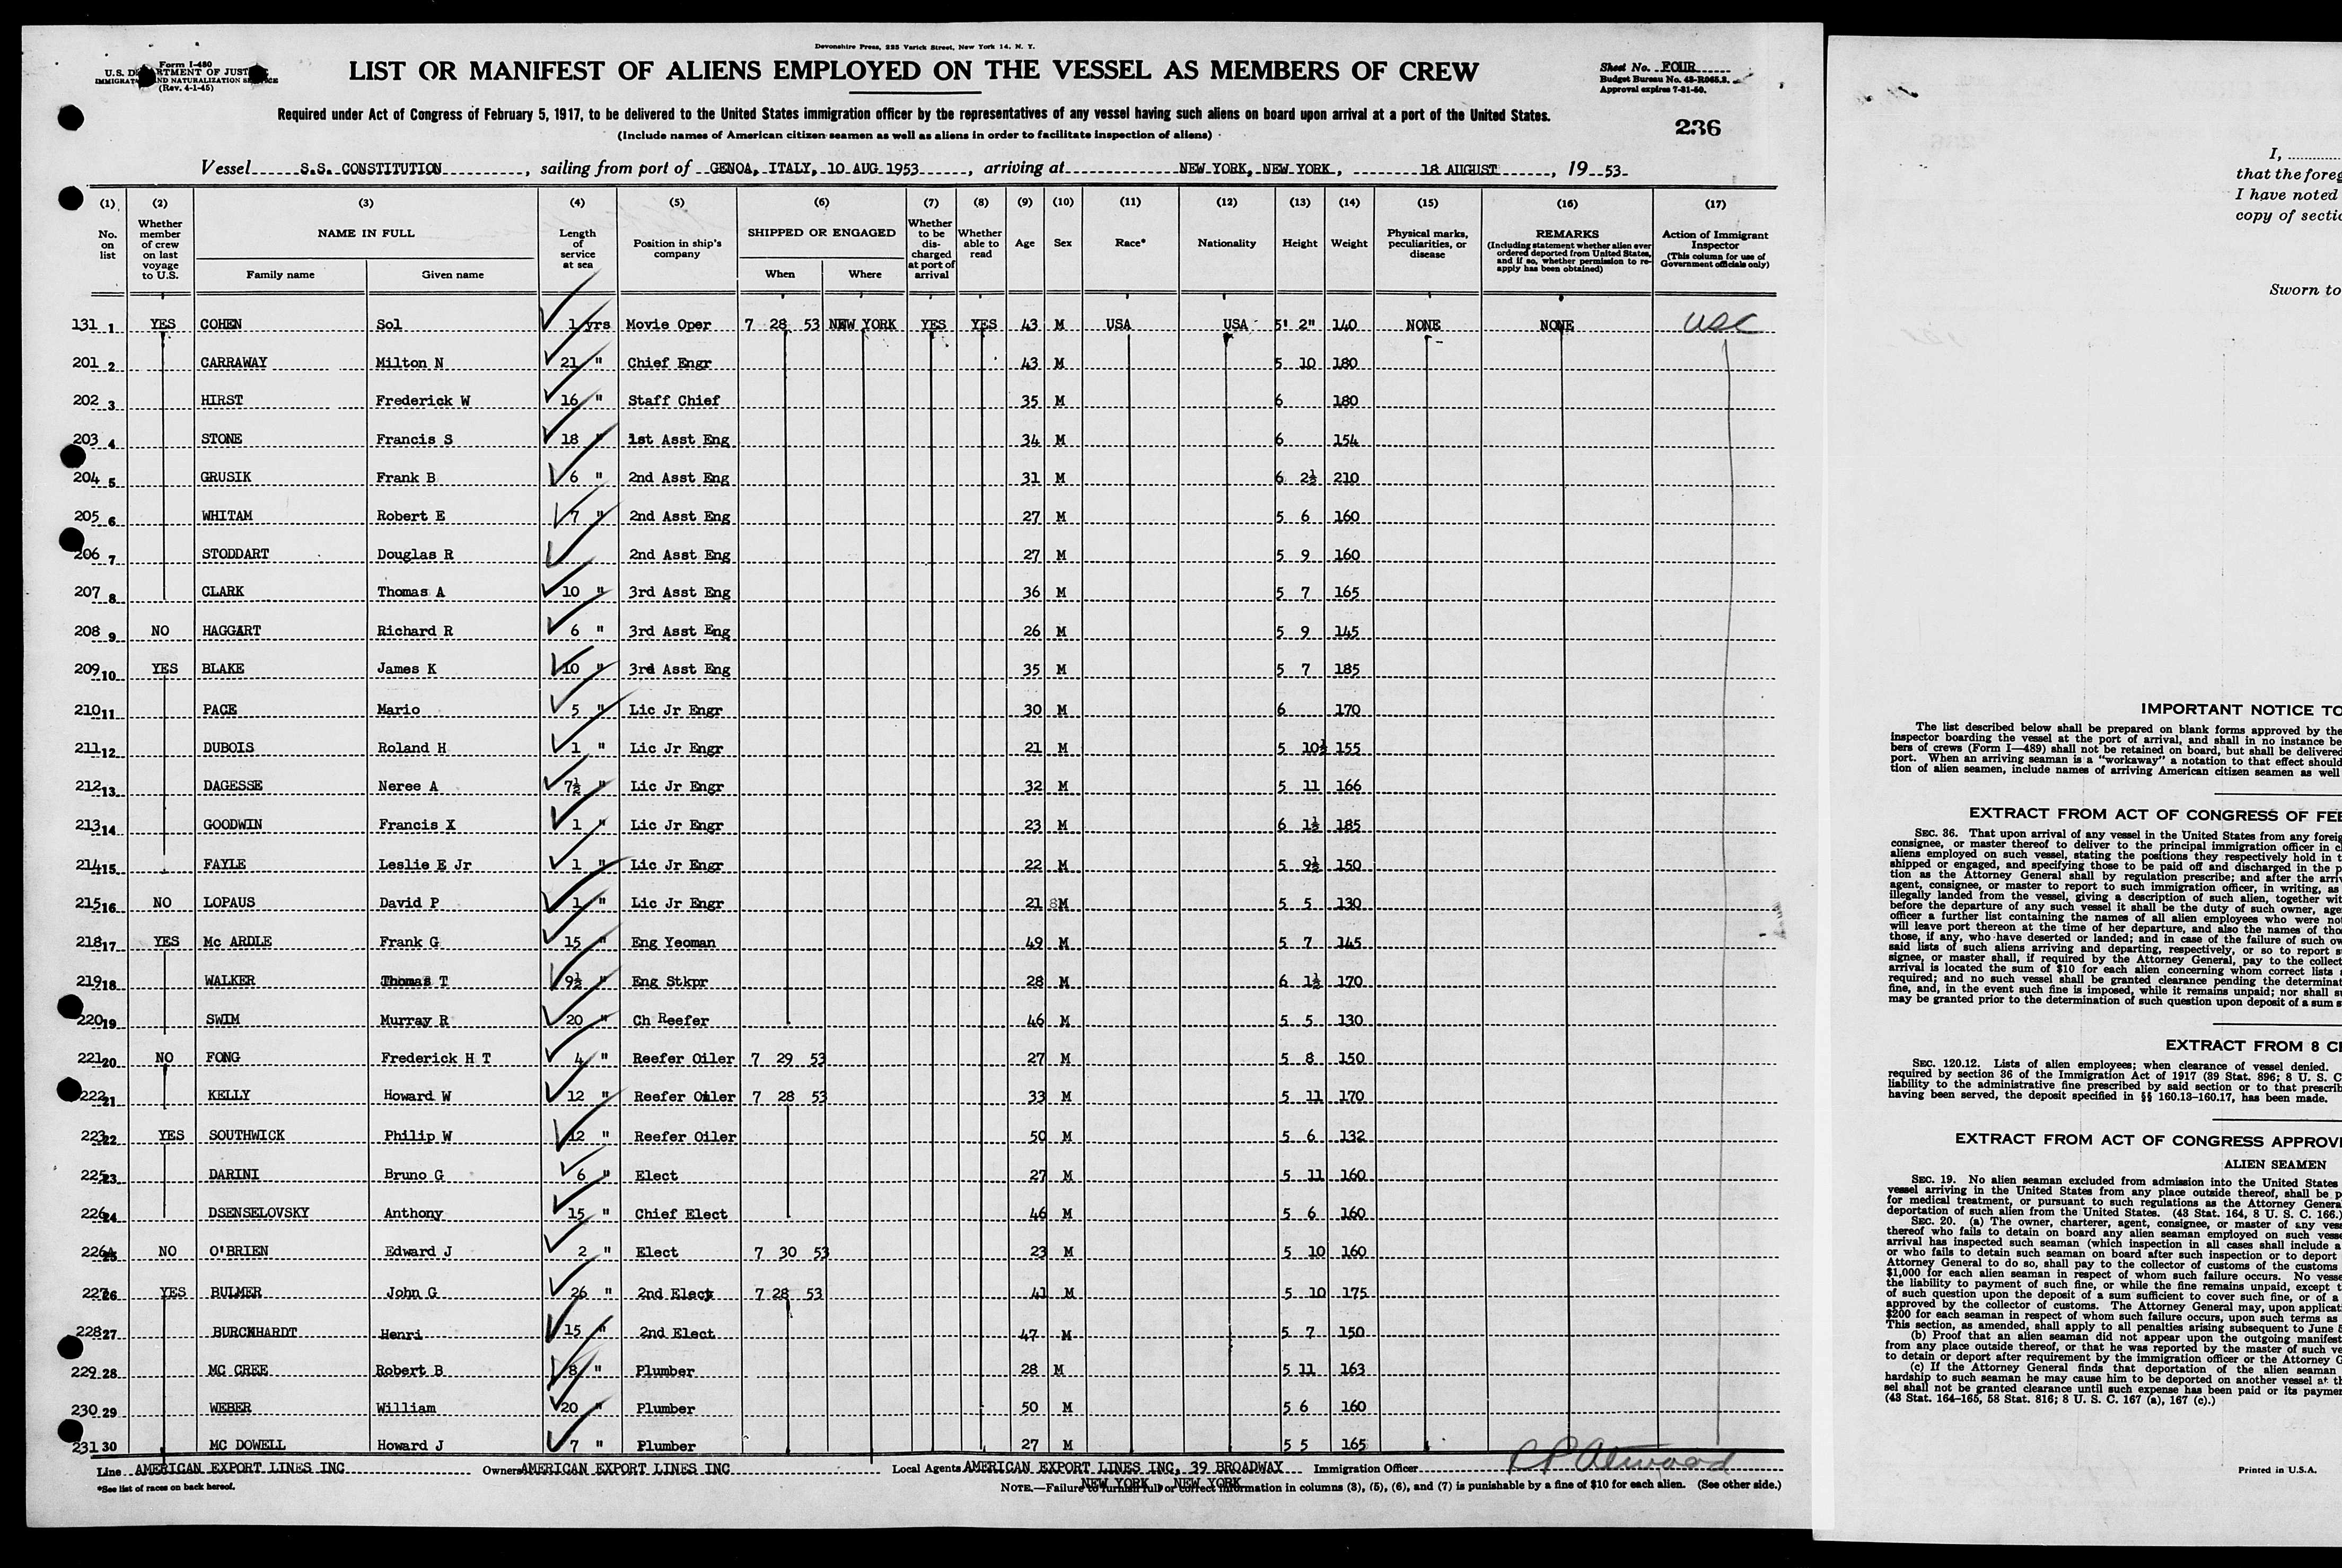 Devonshire Press, 225 Varick Street, New York 14, N. Y.
Form I-480
U.S. DEPARTMENT OF JUSTICE
IMMIGRATION AND NATURALIZATION SERVICE
(Rev. 4-1-45)
LIST OR MANIFEST OF ALIENS EMPLOYED ON THE VESSEL AS MEMBERS OF CREW
Sheet No. FOUR
Budget Bureau No. 43-R065.2.
Approval expires 7-31-50.
Required under Act of Congress of February 5, 1917, to be delivered to the United States immigration officer by the representatives of any vessel having such aliens on board upon arrival at a port of the United States.
(Include names of American citizen seamen as well as aliens in order to facilitate inspection of aliens)
236
Vessel S.S. CONSTITUTION, sailing from port of GENOA, ITALY, 10 AUG 1953, arriving at NEW YORK, NEW YORK, 18 AUGUST, 19 53
(1) (2) (3) (4) (5) (6) (7) (8) (9) (10) (11) (12) (13) (14) (15) (16) (17)
No. on list
Whether member of crew on last voyage to U.S.
NAME IN FULL
Family name
Given name
Length of service at sea
Position in ship's company
SHIPPED OR ENGAGED
When
Where
Whether to be discharged at port of arrival
Whether able to read
Age
Sex
Race*
Nationality
Height
Weight
Physical marks, peculiarities, or disease
REMARKS
(Including statement whether alien ever ordered deported from United States, and if so, whether permission to reapply has been obtained)
Action of Immigrant Inspector
(This column for use of Government officials only)
131 1 YES COHEN Sol 1 yrs Movie Oper 7 28 53 NEW YORK YES YES 43 M USA USA 5' 2" 140 NONE NONE USC
201 2 CARRAWAY Milton N 21 " Chief Engr 43 M 5 10 180
202 3 HIRST Frederick W 16 " Staff Chief 35 M 6 180
203 4 STONE Francis S 18 " 1st Asst Eng 34 M 6 154
204 5 GRUSIK Frank B 6 " 2nd Asst Eng 31 M 6 2½ 210
205 6 WHITAM Robert E 7 " 2nd Asst Eng 27 M 5 6 160
206 7 STODDART Douglas R 2nd Asst Eng 27 M 5 9 160
207 8 CLARK Thomas A 10 " 3rd Asst Eng 36 M 5 7 165
208 9 NO HAGGART Richard R 6 " 3rd Asst Eng 26 M 5 9 145
209 10 YES BLAKE James K 10 " 3rd Asst Eng 35 M 5 7 185
210 11 PACE Mario 5 " Lic Jr Engr 30 M 6 170
211 12 DUBOIS Roland H 1 " Lic Jr Engr 21 M 5 10½ 155
212 13 DAGESSE Neree A 7½ " Lic Jr Engr 32 M 5 11 166
213 14 GOODWIN Francis X 1 " Lic Jr Engr 23 M 6 1½ 185
214 15 FAYLE Leslie E Jr 1 " Lic Jr Engr 22 M 5 9½ 150
215 16 NO LOPAUS David P 1 " Lic Jr Engr 21 M 5 5 130
218 17 YES Mc ARDLE Frank G 15 " Eng Yeoman 49 M 5 7 145
219 18 WALKER Thomas T 9½ " Eng Stkpr 28 M 6 1½ 170
220 19 SWIM Murray R 20 " Ch Reefer 46 M 5 5 130
221 20 NO FONG Frederick H T 4 " Reefer Oiler 7 29 53 27 M 5 8 150
222 21 KELLY Howard W 12 " Reefer Oiler 7 28 53 33 M 5 11 170
223 22 YES SOUTHWICK Philip W 12 " Reefer Oiler 50 M 5 6 132
225 23 DARINI Bruno G 6 " Elect 27 M 5 11 160
226 24 DSENSELOVSKY Anthony 15 " Chief Elect 46 M 5 6 160
226A 25 NO O'BRIEN Edward J 2 " Elect 7 30 53 23 M 5 10 160
227 26 YES BULMER John G 26 " 2nd Elect 7 28 53 41 M 5 10 175
228 27 BURCKHARDT Henri 15 " 2nd Elect 47 M 5 7 150
229 28 MC CREE Robert B 8 " Plumber 28 M 5 11 163
230 29 WEBER William 20 " Plumber 50 M 5 6 160
231 30 MC DOWELL Howard J 7 " Plumber 27 M 5 5 165
Line AMERICAN EXPORT LINES INC Owners AMERICAN EXPORT LINES INC Local Agents AMERICAN EXPORT LINES INC, 39 BROADWAY Immigration Officer
NEW YORK, NEW YORK
*See list of races on back hereof.
NOTE.—Failure to furnish full or correct information in columns (3), (5), (6), and (7) is punishable by a fine of $10 for each alien. (See other side.)
I,
that the foreg
I have noted
copy of sectio
Sworn to
IMPORTANT NOTICE TO
The list described below shall be prepared on blank forms approved by the
inspector boarding the vessel at the port of arrival, and shall in no instance be
bers of crews (Form I—489) shall not be retained on board, but shall be delivered
port. When an arriving seaman is a "workaway" a notation to that effect should
tion of alien seamen, include names of arriving American citizen seamen as well
EXTRACT FROM ACT OF CONGRESS OF FEB
SEC. 36. That upon arrival of any vessel in the United States from any foreig
consignee, or master thereof to deliver to the principal immigration officer in c
aliens employed on such vessel, stating the positions they respectively hold in t
shipped or engaged, and specifying those to be paid off and discharged in the p
tion as the Attorney General shall by regulation prescribe; and after the arriv
agent, consignee, or master to report to such immigration officer, in writing, as
illegally landed from the vessel, giving a description of such alien, together wit
before the departure of any such vessel it shall be the duty of such owner, age
officer a further list containing the names of all alien employees who were not
will leave port thereon at the time of her departure, and also the names of tho
those, if any, who have deserted or landed; and in case of the failure of such ow
said lists of such aliens arriving and departing, respectively, or so to report s
signee, or master shall, if required by the Attorney General, pay to the collect
arrival is located the sum of $10 for each alien concerning whom correct lists
required; and no such vessel shall be granted clearance pending the determinat
fine, and, in the event such fine is imposed, while it remains unpaid; nor shall s
may be granted prior to the determination of such question upon deposit of a sum s
EXTRACT FROM 8 C
SEC. 120.12. Lists of alien employees; when clearance of vessel denied.
required by section 36 of the Immigration Act of 1917 (39 Stat. 896; 8 U. S. C.
liability to the administrative fine prescribed by said section or to that prescrib
having been served, the deposit specified in §§ 160.13-160.17, has been made.
EXTRACT FROM ACT OF CONGRESS APPROV
ALIEN SEAMEN
SEC. 19. No alien seaman excluded from admission into the United States
vessel arriving in the United States from any place outside thereof, shall be p
for medical treatment, or pursuant to such regulations as the Attorney Genera
deportation of such alien from the United States. (43 Stat. 164, 8 U. S. C. 166.)
SEC. 20. (a) The owner, charterer, agent, consignee, or master of any vess
thereof who fails to detain on board any alien seaman employed on such vesse
arrival has inspected such seaman (which inspection in all cases shall include a
or who fails to detain such seaman on board after such inspection or to deport
Attorney General to do so, shall pay to the collector of customs of the customs
$1,000 for each alien seaman in respect of whom such failure occurs. No vesse
the liability to payment of such fine, or while the fine remains unpaid, except t
of such question upon the deposit of a sum sufficient to cover such fine, or of a
approved by the collector of customs. The Attorney General may, upon applicat
$200 for each seaman in respect of whom such failure occurs, upon such terms as
This section, as amended, shall apply to all penalties arising subsequent to June 5
(b) Proof that an alien seaman did not appear upon the outgoing manifest
from any place outside thereof, or that he was reported by the master of such ve
to detain or deport after requirement by the immigration officer or the Attorney G
(c) If the Attorney General finds that deportation of the alien seaman
hardship to such seaman he may cause him to be deported on another vessel at th
sel shall not be granted clearance until such expense has been paid or its payme
(43 Stat. 164-165, 58 Stat. 816; 8 U. S. C. 167 (a), 167 (c).)
Printed in U.S.A.